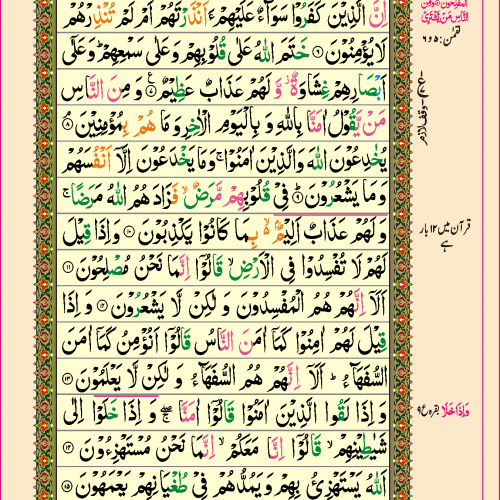 اِنَّ الَّذِيْنَ كَفَرُوْا سَوَآءٌ عَلَيْهِمْ ءَاَنْذَرْتَهُمْ اَمْ لَمْ تُنْذِرْهُمْ
لَا يُؤْمِنُوْنَ ۶ خَتَمَ اللّٰهُ عَلٰى قُلُوْبِهِمْ وَعَلٰى سَمْعِهِمْ ؕ وَعَلٰٓى
اَبْصَارِهِمْ غِشَاوَةٌ ۫ وَّ لَهُمْ عَذَابٌ عَظِيْمٌ ۷ وَ مِنَ النَّاسِ
مَنْ يَّقُوْلُ اٰمَنَّا بِاللّٰهِ وَ بِالْيَوْمِ الْاٰخِرِ وَ مَا هُمْ بِمُؤْمِنِيْنَ ۘ ۸
يُخٰدِعُوْنَ اللّٰهَ وَالَّذِيْنَ اٰمَنُوْا ۚ وَمَا يَخْدَعُوْنَ اِلَّاۤ اَنْفُسَهُمْ
وَ مَا يَشْعُرُوْنَ ؕ ۹ فِيْ قُلُوْبِهِمْ مَّرَضٌ ۙ فَزَادَهُمُ اللّٰهُ مَرَضًا ۚ
وَ لَهُمْ عَذَابٌ اَلِيْمٌۢ ۙ بِمَا كَانُوْا يَكْذِبُوْنَ ۱۰ وَاِذَا قِيْلَ
لَهُمْ لَا تُفْسِدُوْا فِى الْاَرْضِ ۙ قَالُوْۤا اِنَّمَا نَحْنُ مُصْلِحُوْنَ ۱۱
اَلَاۤ اِنَّهُمْ هُمُ الْمُفْسِدُوْنَ وَ لٰكِنْ لَّا يَشْعُرُوْنَ ۱۲ وَ اِذَا
قِيْلَ لَهُمْ اٰمِنُوْا كَمَاۤ اٰمَنَ النَّاسُ قَالُوْۤا اَنُؤْمِنُ كَمَاۤ اٰمَنَ
السُّفَهَآءُ ؕ اَلَاۤ اِنَّهُمْ هُمُ السُّفَهَآءُ وَ لٰكِنْ لَّا يَعْلَمُوْنَ ۱۳
وَ اِذَا لَقُوا الَّذِيْنَ اٰمَنُوْا قَالُوْۤا اٰمَنَّا ۚۖ وَ اِذَا خَلَوْا اِلٰى
شَيٰطِيْنِهِمْ ۙ قَالُوْۤا اِنَّا مَعَكُمْ ۙ اِنَّمَا نَحْنُ مُسْتَهْزِءُوْنَ ۱۴
اَللّٰهُ يَسْتَهْزِئُ بِهِمْ وَ يَمُدُّهُمْ فِيْ طُغْيَانِهِمْ يَعْمَهُوْنَ ۱۵
المفلحون ومن
الناس من یشتری
لقمٰن: ۵ و ۶
وقف لازم
قرآن میں ۱۲ بار
ہے
وَاِذَا خَلَا بقرہ ع ۹